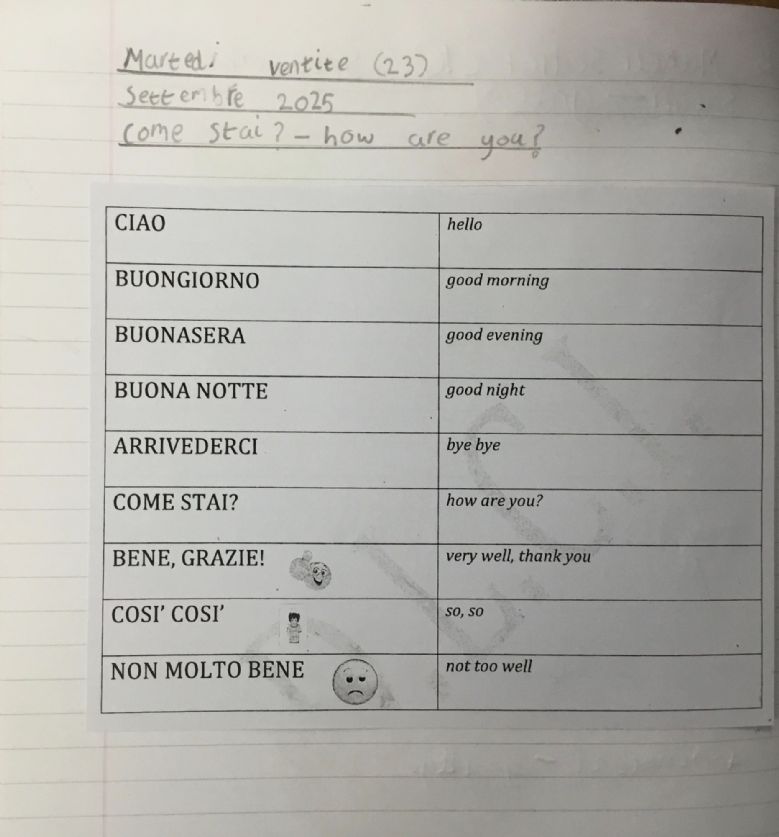 Martedi ventite (23)
Settembre 2025
Come stai? – how are you?
CIAO hello
BUONGIORNO good morning
BUONASERA good evening
BUONA NOTTE good night
ARRIVEDERCI bye bye
COME STAI? how are you?
BENE, GRAZIE! very well, thank you
COSI’ COSI’ so, so
NON MOLTO BENE not too well